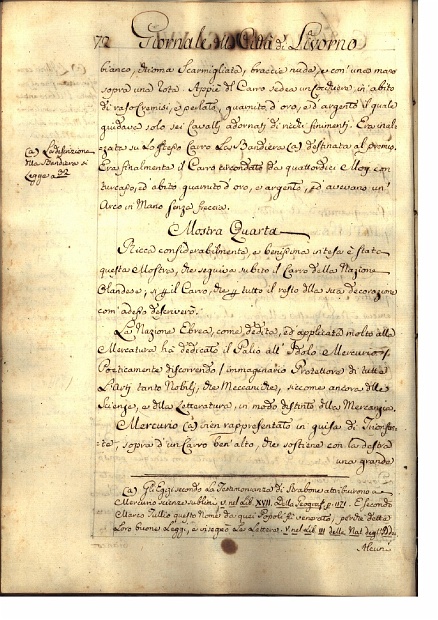 72 Giornale della Città di Livorno
bianco, chioma Scarmigliata, braccie nude, e con una mano
sopra una rota. Appiè del Carro sedea un Cocchiere, in abito
di raso Cremisi, e perlato, guarnito d'oro, ed argento il quale
guidava solo sei Cavalli adornati di ricchi finimenti. Era inal-
zata su lo stesso Carro La Bandiera (a) destinata al premio.
Era finalmente il Carro circondato da quattordici Mori con
turcasso, ed abito guarnito d'oro, e argento, ed avevano un'
Arco in Mano senza freccie.
(a) La descrizione
della Bandiera si
Legge a 92
Mostra Quarta
Ricca considerabilmente, e benissimo intesa è stata
questa Mostra, che seguiva subito il Carro della Nazione
Olandese, sì il Carro, che tutto il resto della sua decorazione
com' adesso descriverò.
La Nazione Ebrea, come dedita, ed applicata molto alla
Mercatura ha dedicato il Palio all' Idolo Mercurio
Poeticamente discorrendo immaginario Protettore di tutte
L'Arti tanto Nobili, che Meccaniche, siccome ancora delle
Scienze, e della Letteratura, in modo distinto della Mercanzia.
Mercurio (a) vien rappresentato in guisa di Trionfan-
te, sopra d'un Carro ben' alto, che sostiene con la destra
una grande
(a) Gli Egizi secondo La Testimonianza di Strabone attribuirono a
Mercurio scienze sublimi, v. nel Lib. XVII. Della Geograf. p. 1171. E secondo
Marco Tullio questo Nome da quei Popoli fù venerato, perchè dette
Loro buone Leggi, e insegnò Le Lettere. V. nel Lib. III della Nat. degl' Dei,
Alcuni